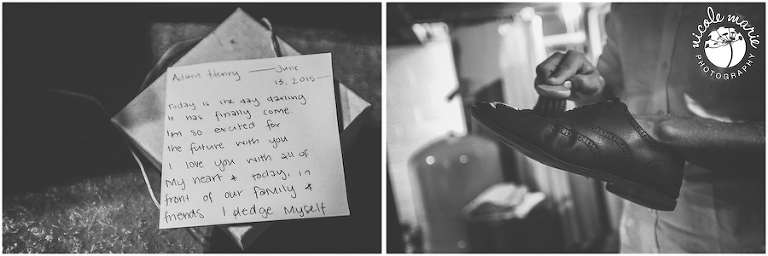 Adam Henry — June
13, 2015 —
Today is the day darling
it has finally come.
I'm so excited for
the future with you
I love you with all of
My heart & today, in
front of our family &
friends I pledge Myself
nicole marie
PHOTOGRAPHY